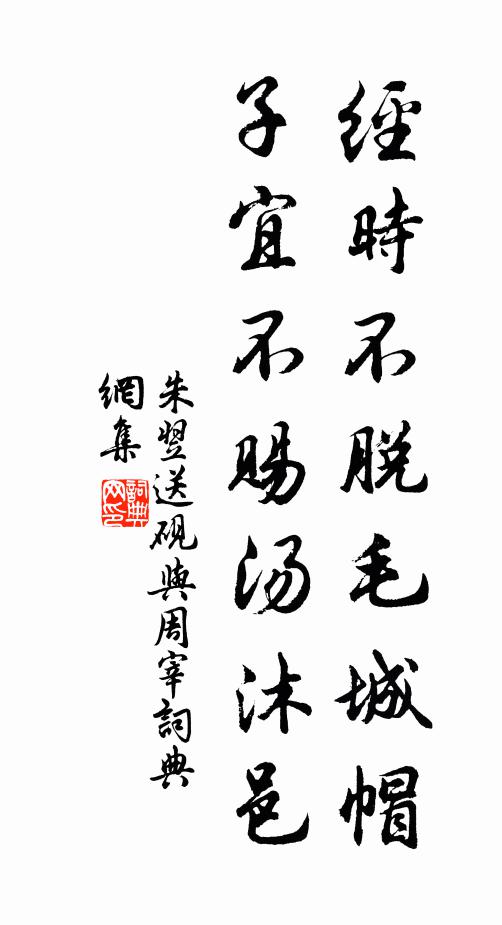 經時不脱毛城帽
子宜不賜湯沐邑
朱翌送硯與周宰詞典
網集
詞典
网印